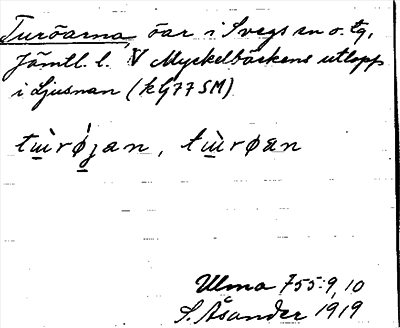 Turöarna, öar i Svegs sn o. tg,
Jämtl. l. V Myckelbäckens utlopp
i Ljusnan (kG77SM)
tùrø̀jan, tùrøan
Ulma 755:9, 10
S. Åsander 1919